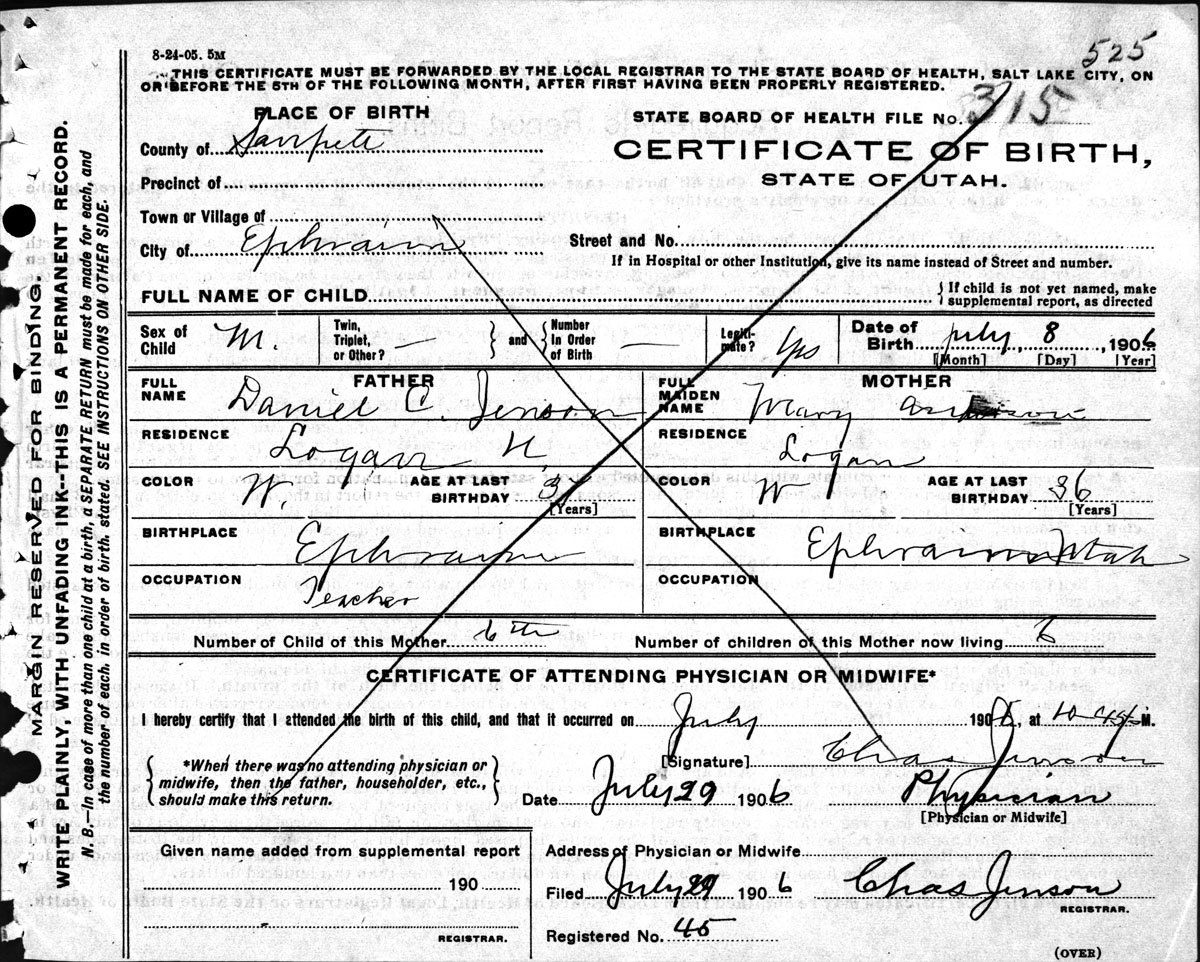 525
8-24-05. 5M
THIS CERTIFICATE MUST BE FORWARDED BY THE LOCAL REGISTRAR TO THE STATE BOARD OF HEALTH, SALT LAKE CITY, ON
OR BEFORE THE 5TH OF THE FOLLOWING MONTH, AFTER FIRST HAVING BEEN PROPERLY REGISTERED.
PLACE OF BIRTH
STATE BOARD OF HEALTH FILE No. 315
County of Sanpete
CERTIFICATE OF BIRTH,
STATE OF UTAH.
Precinct of
Town or Village of
City of Ephraim
Street and No.
If in Hospital or other Institution, give its name instead of Street and number.
FULL NAME OF CHILD
If child is not yet named, make
supplemental report, as directed
Sex of Child M.
Twin, Triplet, or Other? —
and
Number In Order of Birth —
Legiti-mate? Yes
Date of Birth July, 8, 1906
[Month] [Day] [Year]
FATHER
FULL NAME Daniel C. Jenson
RESIDENCE Logan
COLOR W.
AGE AT LAST BIRTHDAY
[Years]
BIRTHPLACE Ephraim
OCCUPATION Teacher
MOTHER
FULL MAIDEN NAME Mary
RESIDENCE Logan
COLOR W
AGE AT LAST BIRTHDAY 36
[Years]
BIRTHPLACE Ephraim Utah
OCCUPATION
Number of Child of this Mother 6th
Number of children of this Mother now living 6
CERTIFICATE OF ATTENDING PHYSICIAN OR MIDWIFE*
I hereby certify that I attended the birth of this child, and that it occurred on July 1906, at 10-45 P M.
*When there was no attending physician or
midwife, then the father, householder, etc.,
should make this return.
[Signature] Chas Jenson
Date July 29 1906 Physician
[Physician or Midwife]
Given name added from supplemental report
190
REGISTRAR.
Address of Physician or Midwife
Filed July 29 1906 Chas Jenson
REGISTRAR.
Registered No. 45
(OVER)
MARGIN RESERVED FOR BINDING.
WRITE PLAINLY, WITH UNFADING INK--THIS IS A PERMANENT RECORD.
N. B.—In case of more than one child at a birth, a SEPARATE RETURN must be made for each, and
the number of each, in order of birth, stated. SEE INSTRUCTIONS ON OTHER SIDE.